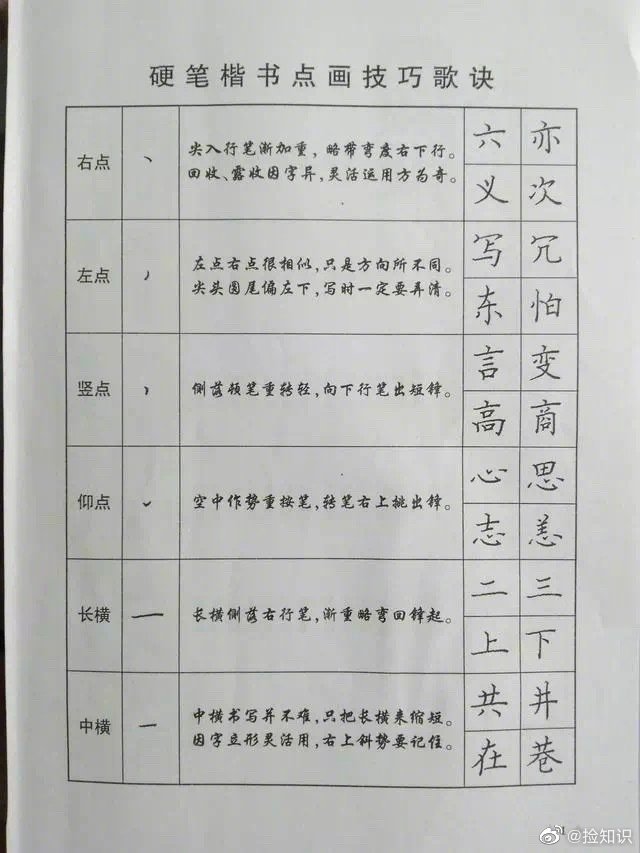 硬笔楷书点画技巧歌诀
右点 丶 尖入行笔渐加重，略带弯度右下行。 六 亦
回收、露收因字异，灵活运用方为奇。 义 次
左点 左点右点很相似，只是方向所不同。 写 冗
尖头圆尾偏左下，写时一定要弄清。 东 怕
竖点 侧落顿笔重转轻，向下行笔出短锋。 言 变
高 商
仰点 空中作势重按笔，转笔右上挑出锋。 心 思
志 恙
长横 一 长横侧落右行笔，渐重略弯回锋起。 二 三
上 下
中横 一 中横书写并不难，只把长横来缩短。 共 井
因字立形灵活用，右上斜势要记住。 在 巷
1
@捡知识